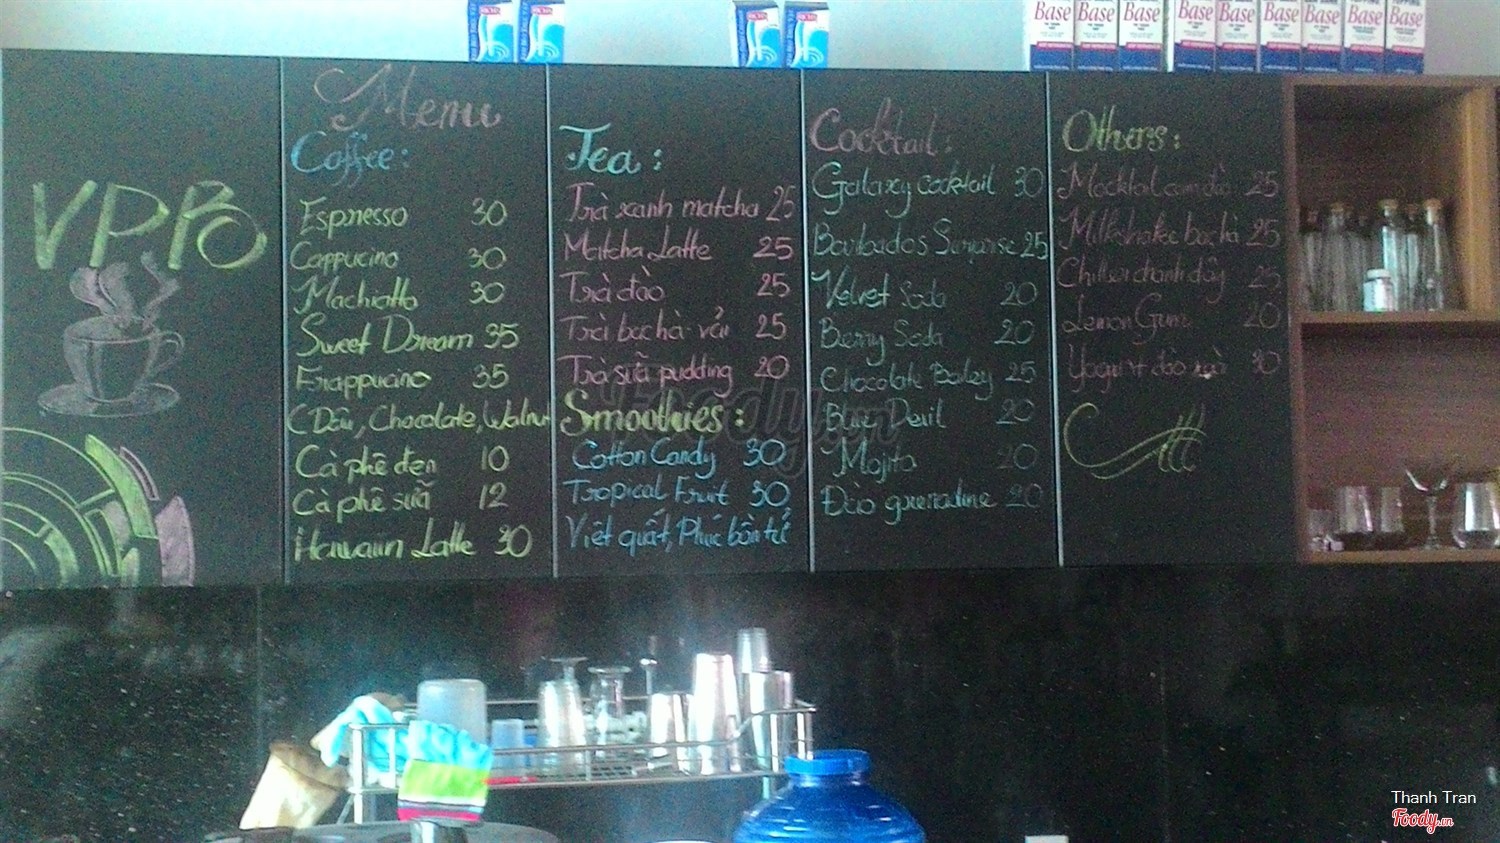 VPPO
Menu
Coffee:
Espresso 30
Cappucino 30
Machiatto 30
Sweet Dream 35
Frappucino 35
(Dâu, Chocolate, Walnut
Cà phê đen 10
Cà phê sữa 12
Hawaiin Latte 30
Tea:
Trà xanh matcha 25
Matcha Latte 25
Trà đào 25
Trà bạc hà - vải 25
Trà sữa pudding 20
Smoothies:
Cotton Candy 30
Tropical Fruit 30
Việt quất, Phúc bồn tử
Cocktail:
Galaxy cocktail 30
Barbados Sunrise 25
Velvet Soda 20
Berry Soda 20
Chocolate Bailey 25
Blue Devil 20
Mojito 20
Đào grenadine 20
Others:
Mocktail cam đào 25
Milkshake bạc hà 25
Chiller chanh dây 25
Lemon Gum 20
Yogurt đào
Base Base Base Base Base Base Base Base Base
Foody.vn
Thanh Tran
Foody.vn